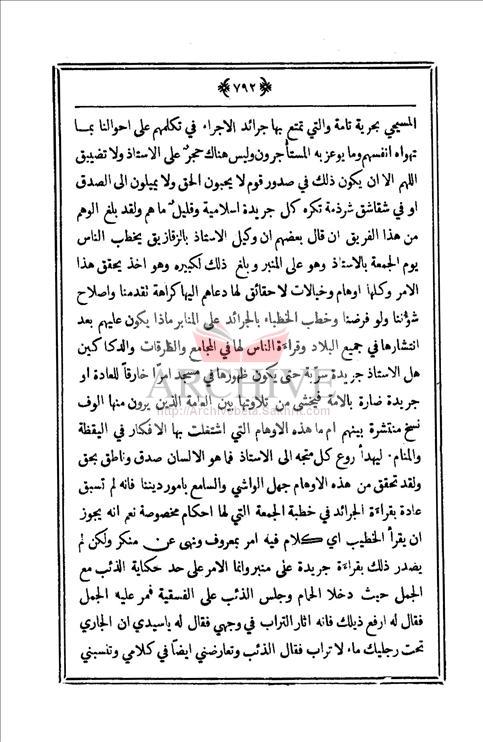 ٧٩٢
المسيحي بحرية تامة والتي تمتع بها جرائد الاجراء في تكلمهم على احوالنا بما
تهواه انفسهم وما يوعز به المستأجرون وليس هناك حجر على الاستاذ ولا تضييق
اللهم الا ان يكون ذلك في صدور قوم لا يحبون الحق ولا يميلون الى الصدق
او في شقاشق شرذمة تكره كل جريدة اسلامية وقليل ما هم ولقد بلغ الوهم
من هذا الفريق ان قال بعضهم ان وكيل الاستاذ بالزقازيق يخطب الناس
يوم الجمعة بالاستاذ وهو على المنبر وبلغ ذلك لكبيره وهو اخذ يحقق هذا
الامر وكلها اوهام وخيالات لا حقائق لها دعاهم اليها كراهة تقدمنا واصلاح
شؤننا ولو فرضنا وخطب الخطباء بالجرائد على المنابر ماذا يكون عليهم بعد
انتشارها في جميع البلاد وقراءة الناس لها في المجامع والطرقات والدكاكين
هل الاستاذ جريدة سرية حتى يكون ظهورها في مسجد امرا خارقاً للعادة او
جريدة ضارة بالامة فيخشى من تلاوتها بين العامة الذين يرون منها الوف
نسخ منتشرة بينهم ام ما هذه الاوهام التي اشتغلت بها الافكار في اليقظة
والمنام ٠ ليهدأ روع كل متجه الى الاستاذ فما هو الالسان صدق وناطق بحق
ولقد تحقق من هذه الاوهام جهل الواشي والسامع بامور ديننا فانه لم تسبق
عادة بقراءة الجرائد في خطبة الجمعة التي لها احكام مخصوصة نعم انه يجوز
ان يقرأ الخطيب اي كلام فيه امر بمعروف ونهى عن منكر ولكن لم
يصدر ذلك بقراءة جريدة على منبر وانما الامر على حد حكاية الذئب مع
الجمل حيث دخلا الحمام وجلس الذئب على الفسقية فمر عليه الجمل
فقال له ارفع ذيلك فانه اثار التراب في وجهي فقال له ياسيدي ان الجاري
تحت رجليك ماء لا تراب فقال الذئب وتعارضني ايضاً في كلامي وتنسبني
ARCHIVE
http://Archivebeta.Sakhrit.com